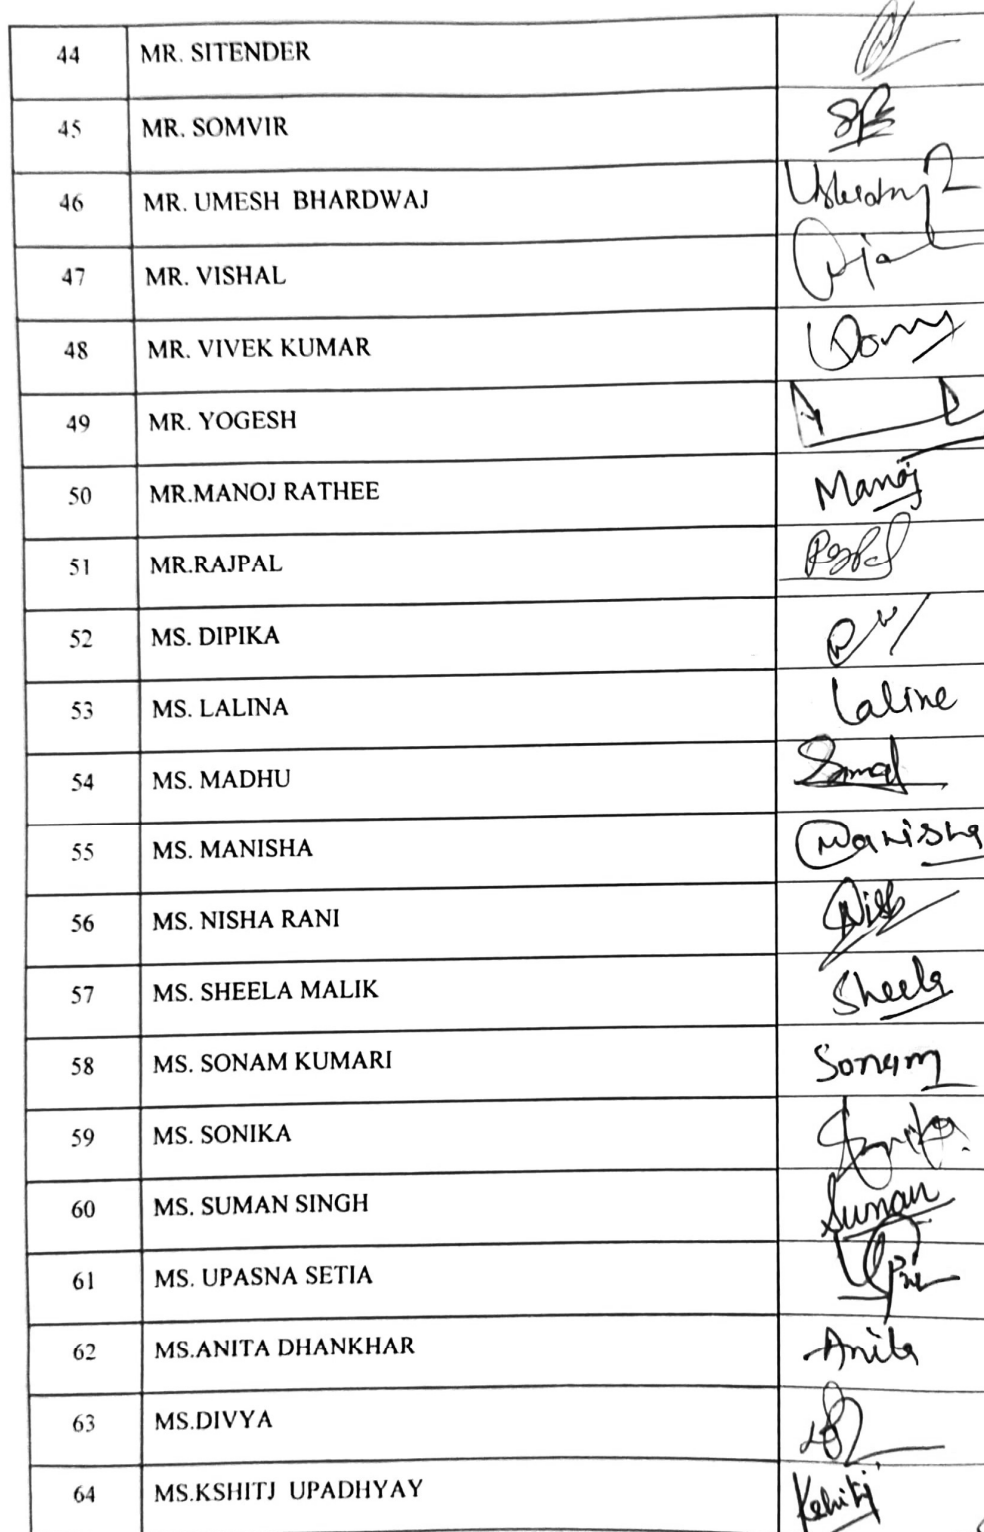 44 MR. SITENDER
45 MR. SOMVIR
46 MR. UMESH BHARDWAJ
47 MR. VISHAL
48 MR. VIVEK KUMAR
49 MR. YOGESH
50 MR.MANOJ RATHEE Manoj
51 MR.RAJPAL
52 MS. DIPIKA
53 MS. LALINA Laline
54 MS. MADHU
55 MS. MANISHA Manisha
56 MS. NISHA RANI
57 MS. SHEELA MALIK Sheela
58 MS. SONAM KUMARI Sonam
59 MS. SONIKA
60 MS. SUMAN SINGH Suman
61 MS. UPASNA SETIA
62 MS.ANITA DHANKHAR Anita
63 MS.DIVYA
64 MS.KSHITJ UPADHYAY